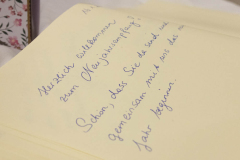 Herzlich willkommen
zum Neujahrsempfang!
Schön, dass Sie da sind und
gemeinsam mit uns das neue
Jahr beginnen.